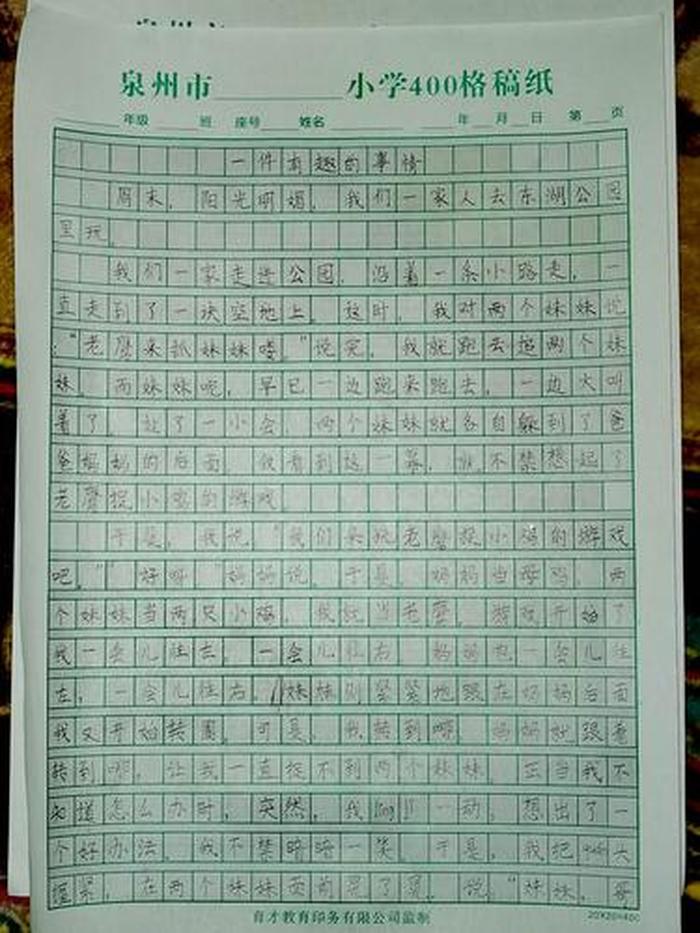 泉州市 小学400格稿纸
年级 班 座号 姓名 年 月 日 第 页
一件有趣的事情
周末，阳光明媚，我们一家人去东湖公园
里玩。
我们一家走进公园，沿着一条小路走，一
直走到了一块空地上。这时，我对两个妹妹说
：“老鹰来抓妹妹喽。”说完，我就跑去追两个妹
妹。而妹妹呢，早已一边跑来跑去，一边大叫
着了。过了一小会，两个妹妹就各自躲到了爸
爸妈妈的后面。我看到这一幕，不禁想起了
老鹰捉小鸡的游戏。
于是，我说：“我们来玩老鹰捉小鸡的游戏
吧。”“好呀。”妈妈说。于是，妈妈当母鸡，两
个妹妹当两只小鸡，我就当老鹰。游戏开始了
我一会儿往左，一会儿往右，妈妈也一会儿往
左，一会儿往右，妹妹则紧紧地跟在妈妈后面
我又开始转圈。可是，我转到哪，妈妈就跟着
转到哪，让我一直捉不到两个妹妹。正当我不
知道怎么办时，突然，我一动，想出了一
个好办法。我不禁暗暗一笑。于是，我把
握紧，在两个妹妹面前晃了晃，说：“妹妹，哥
育才教育印务有限公司监制
20X20=400